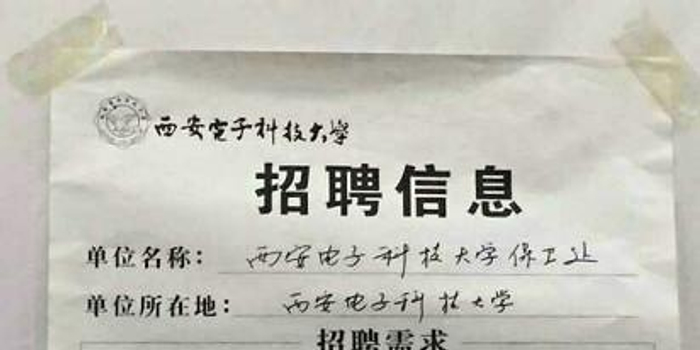 西安电子科技大学
招聘信息
单位名称：西安电子科技大学保卫处
单位所在地：西安电子科技大学
招聘需求